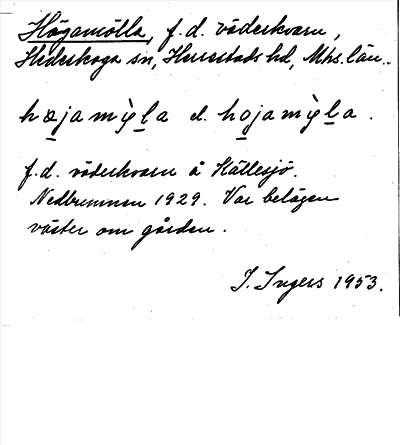 Högamölla, f. d. väderkvarn,
Hedeskoga sn, Herrestads hd, Mhs. län..
højamỳla el. hojamỳla.
f.d. väderkvarn å Hällesjö.
Nedbrunnen 1929. Var belägen
väster om gården.
I. Ingers 1953.